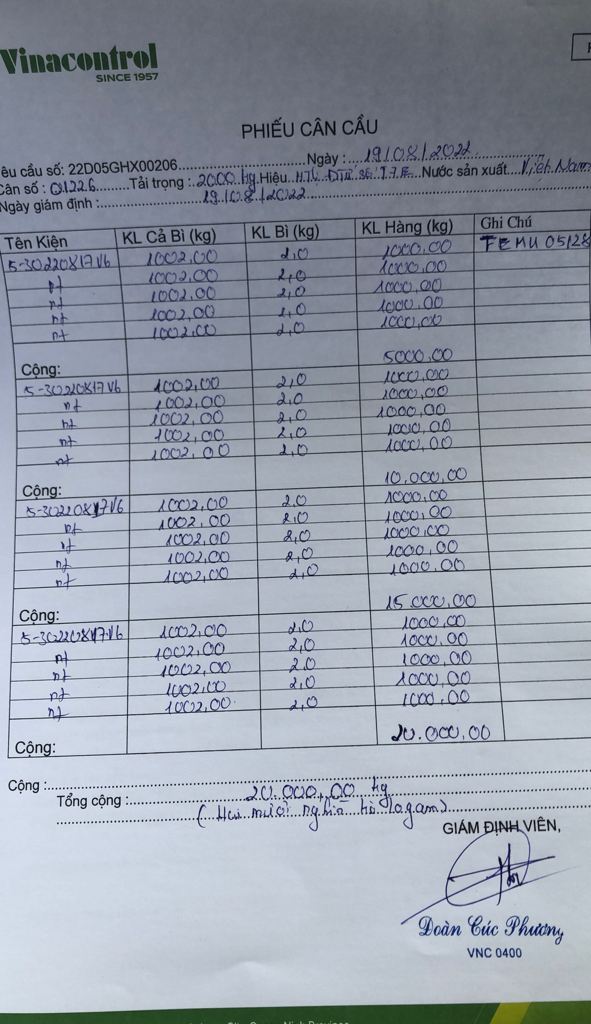 Vinacontrol
SINCE 1957
PHIẾU CÂN CẦU
êu cầu số: 22D05GHX00206 Ngày: 19/08/2022
Cân số: 01226 Tải trọng: 2000 kg Hiệu: Nước sản xuất: Việt Nam
Ngày giám định: 19/08/2022
Tên Kiện KL Cả Bì (kg) KL Bì (kg) KL Hàng (kg) Ghi Chú
5-30220817.V6 1002,00 2,0 1000,00 TEMU 05128
nt 1002,00 2,0 1000,00
nt 1002,00 2,0 1000,00
nt 1002,00 2,0 1000.00
nt 1002,00 2,0 1000,00
Cộng: 5000,00
5-30220817V6 1002,00 2,0 1000,00
nt 1002,00 2,0 1000,00
nt 1002,00 2,0 1000,00
nt 1002,00 2,0 1000,00
nt 1002,00 2,0 1000,00
Cộng: 10.000,00
5-30220817V6 1002,00 2,0 1000,00
nt 1002,00 2,0 1000,00
nt 1002,00 2,0 1000,00
nt 1002,00 2,0 1000,00
nt 1002,00 2,0 1000.00
Cộng: 15.000,00
5-30220817V6 1002,00 2,0 1000,00
nt 1002,00 2,0 1000,00
nt 1002,00 2,0 1000,00
nt 1002,00 2,0 1000,00
nt 1002,00 2,0 1000,00
Cộng: 20.000,00
Cộng:
Tổng cộng: 20.000,00 kg
(Hai mươi nghìn ki logam)
GIÁM ĐỊNH VIÊN,
Đoàn Cúc Phương
VNC 0400